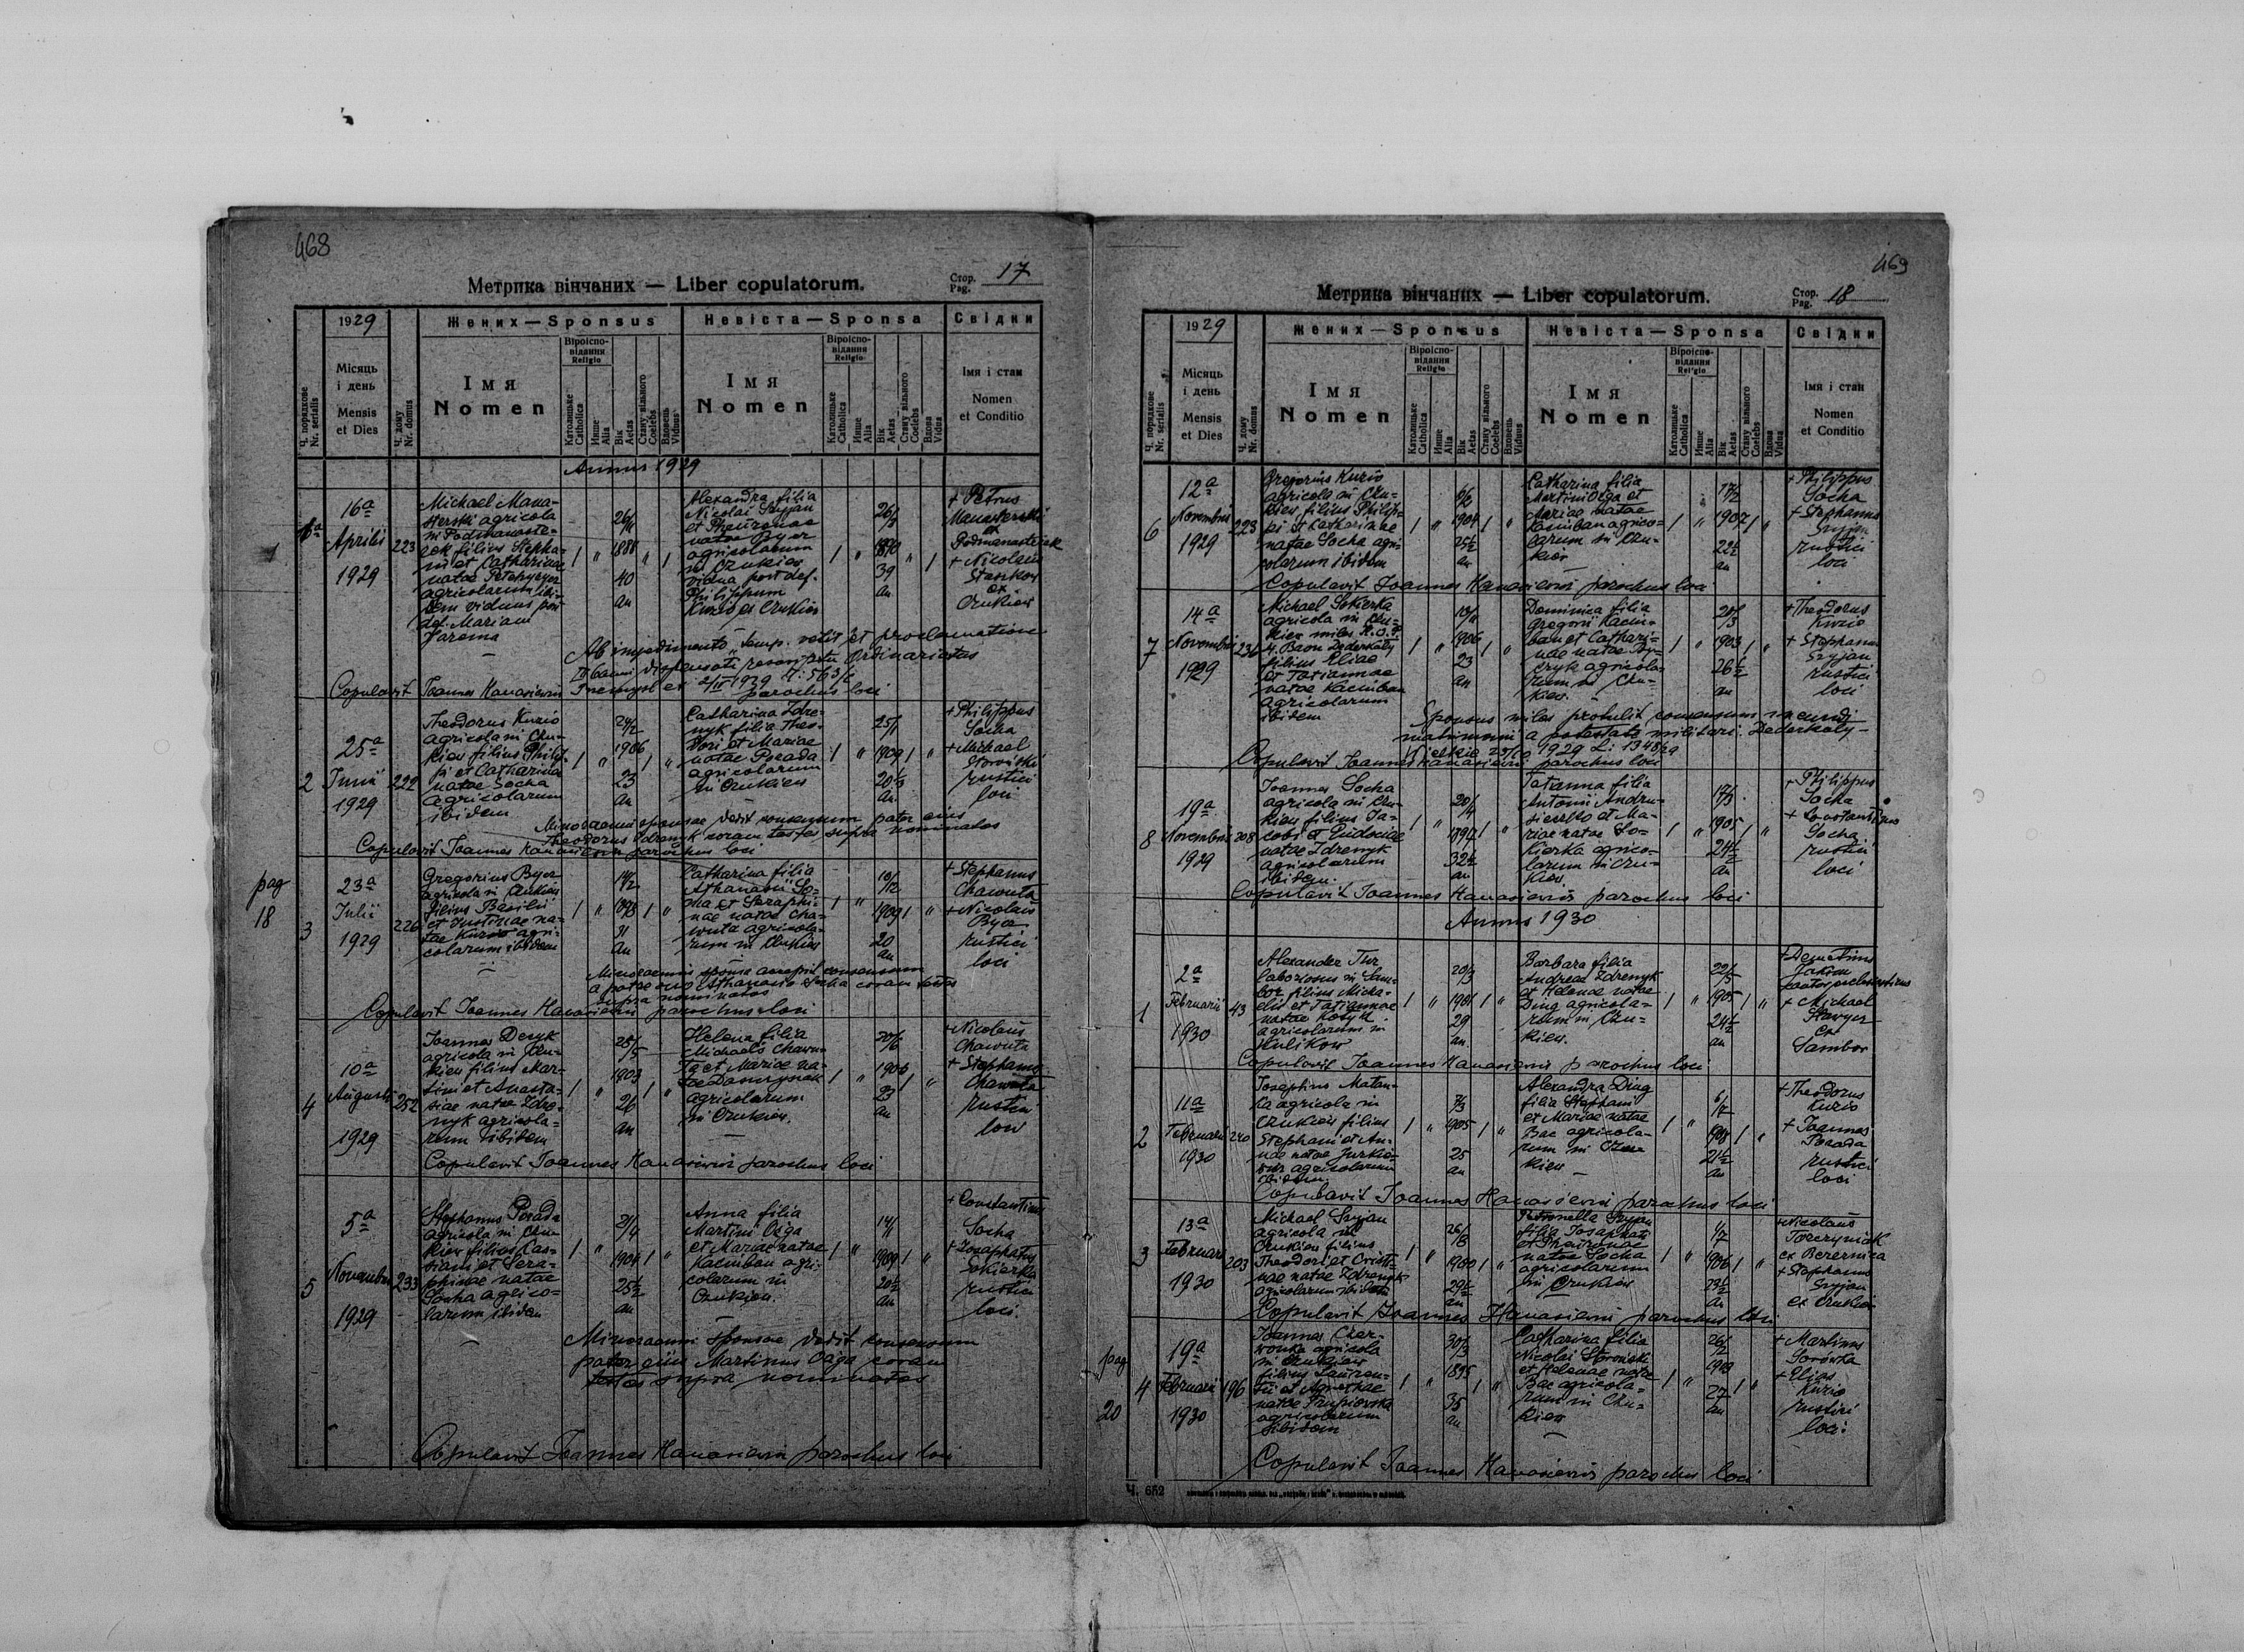 468
Метрика вінчаних — Liber copulatorum.
Стор. Pag. 17
1929
Жених — Sponsus
Невіста — Sponsa
Свідки
Ч. порядкове Nr. serialis
Місяць і день Mensis et Dies
Ч. дому Nr. domus
Імя Nomen
Віроісповідання Religio
Католицьке Catholica
Инше Alia
Вік Aetas
Стану вільного Coelebs
Вдовець Viduus
Імя Nomen
Віроісповідання Religio
Католицьке Catholica
Инше Alia
Вік Aetas
Стану вільного Coelebs
Вдова Vidua
Імя і стан Nomen et Conditio
Annus 1929
16a
Aprilis
1929
223
Michael Mana-
sterski agricola
in Podmanaste-
rek filius Stepha-
ni et Catharinae
natae
agricolarum ibi-
dem viduus post
def. Mariam
Jarema
26/11
1888
40
an
Alexandra filia
Nicolai Szyjan
natae Byer
agricolarum
in Czukiew
vidua post def.
Philippum
Kuzio ex Czukiew
26/3
1890
39
an
+ Petrus
Manasterski
ex
Podmanasterek
+ Nicolaus
Stankow
ex
Czukiew
Ab impedimento temp. vetit et proclamatione
Copulavit Joannes Hanasiewicz parochus loci
2
25a
Junii
1929
222
Theodorus Kuzio
agricola in Czu-
kiew filius Philip-
pi et Catharinae
natae Socha
agricolarum
ibidem
24/2
1906
23
an
Catharina Zdre-
nyk filia Theo-
dori et Mariae
natae Posada
agricolarum
in Czukiew
25/1
1909
20
an
+ Philippus
Socha
+ Michael
rustici
loci
Minorenni sponsae dedit consensum pater eius
Theodorus Zdrenyk coram testes supra nominatos
Copulavit Joannes Hanasiewicz parochus loci
pag
18
3
23a
Julii
1929
226
Gregorius Byer
agricola in Czukiew
filius Basilii
et Justinae na-
tae Kuzio agri-
colarum ibidem
14/2
1898
31
an
Catharina filia
Athanasii So-
cha et Seraphi-
nae natae Cha-
wuta agricola-
rum in Czukiew
10/12
1909
20
an
+ Stephanus
Chawuta
+ Nicolaus
Byer
rustici
loci
supra nominatos
Copulavit Joannes Hanasiewicz parochus loci
4
10a
Augusti
1929
252
Joannes Deryk
agricola in Czu-
kiew filius Mar-
tini et Anasta-
siae natae Zdre-
nyk agricola-
rum ibidem
25/5
1903
26
an
Helena filia
Michaelis Chawu-
ta et Mariae na-
tae
agricolarum
in Czukiew.
20/6
1906
23
an
+ Nicolaus
Chawuta
+ Stephanus
Chawuta
rustici
loci
Copulavit Joannes Hanasiewicz parochus loci
5
5a
Novembris
1929
233
Stephanus Posada
agricola in Czu-
kiew filius Cas-
siani et Sera-
phinae natae
Socha agrico-
larum ibidem
21/4
1904
25½
an
Anna filia
Martini Ożga
et Mariae natae
Kacimban agri-
colarum in
Czukiew.
14/1
1909
20½
an
+ Constantinus
Socha
+ Josaphatus
Sokierka
rustici
loci.
Minorenni sponsae dedit consensum
pater eius Martinus Ożga coram
testes supra nominatos
Copulavit Joannes Hanasiewicz parochus loci
469
Метрика вінчаних — Liber copulatorum.
Стор. Pag. 18
1929
Жених — Sponsus
Невіста — Sponsa
Свідки
Ч. порядкове Nr. serialis
Місяць і день Mensis et Dies
Ч. дому Nr. domus
Імя Nomen
Віроісповідання Religio
Католицьке Catholica
Инше Alia
Вік Aetas
Стану вільного Coelebs
Вдовець Viduus
Імя Nomen
Віроісповідання Religio
Католицьке Catholica
Инше Alia
Вік Aetas
Стану вільного Coelebs
Вдова Vidua
Імя і стан Nomen et Conditio
6
12a
Novembris
1929
223
Gregorius Kuzio
agricola in Czu-
kiew filius Philip-
pi et Catharinae
natae Socha agri-
colarum ibidem
1904
25½
an
Catharina filia
Martini Ożga et
Mariae natae
Kacimban agrico-
larum in Czu-
kiew
17/2
1907
22½
an
+ Philippus
Socha
+ Stephanus
Szyjan
rustici
loci
Copulavit Joannes Hanasiewicz parochus loci
7
14a
Novembris
1929
236
Michael Sokierka
agricola in Czu-
kiew miles K.O.P.
4. Baon Dederkały
filius Eliae
et Tatiannae
natae Kacimban
agricolarum
ibidem
1906
23
an
Dominica filia
Gregorii Kacim-
ban et Cathari-
nae natae
agricola-
rum in Czu-
kiew.
20/3
1903
26½
an
+ Theodorus
Kuzio
+ Stephanus
Szyjan
rustici
loci
Sponsus miles protulit consensum ineundi
matrimonii a potestate militari. Dederkały
Copulavit Joannes Hanasiewicz parochus loci
8
19a
Novembris
1929
208
Joannes Socha
agricola in Czu-
kiew filius Ja-
cobi et Eudoxiae
natae Zdrenyk
agricolarum
ibidem.
20/4
1897
32½
an
Tatianna filia
Antonii Andru-
et Ma-
riae natae So-
kierka agrico-
larum in Czu-
kiew
17/3
1905
24½
an
+ Philippus
Socha
+ Constantinus
Socha
rustici
loci
Copulavit Joannes Hanasiewicz parochus loci
Annus 1930
1
2a
Februarii
1930
43
Alexander Tur
laboriosus in Sam-
bor filius Micha-
elis et Tatiannae
natae Kosyk
agricolarum in
Kulikow
20/3
1901
29
an.
Barbara filia
Andreae Zdrenyk
et Helenae natae
Ding agricola-
rum in Czu-
kiew.
22/5
1905
24½
an
+ Demetrius
Jakim
+ Michael
ex
Sambor
Copulavit Joannes Hanasiewicz parochus loci
2
11a
Februarii
1930
240
Josephus Matau-
ka agricola in
Czukiew filius
Stephani et An-
nae natae Jurkie-
wicz agricolarum
ibidem
7/3
1905
25
an
Alexandra Ding
filia Stephani
et Mariae natae
Bac agricola-
rum in Czu-
kiew
6/7
1908
21½
an
+ Theodorus
Kuzio
+ Joannes
Posada
rustici
loci
Copulavit Joannes Hanasiewicz parochus loci
3
13a
Februarii
1930
203
Michael Szyjan
agricola in
Czukiew filius
Theodori et Christi-
nae natae Zdrenyk
agricolarum ibidem
26/8
1900
29½
an
Petronella Szyjan
filia Josaphati
natae Socha
agricolarum
in Czukiew
1/7
1906
23½
an
+ Nicolaus
ex Bereznica
+ Stephanus
Szyjan
ex Czukiew
Copulavit Joannes Hanasiewicz parochus loci
pag
20
4
19a
Februarii
1930
196
Joannes Czer-
wonka agricola
in Czukiew
filius Lauren-
tii et Agathae
natae
agricolarum
ibidem
30/3
1895
35
an
Catharina filia
Nicolai
et Helenae natae
Bac agricola-
rum in Czu-
kiew
26/2
27
an
+ Martinus
+ Elias
Kuzio
rustici
loci.
Copulavit Joannes Hanasiewicz parochus loci
Ч. 652